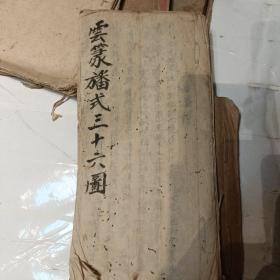 雲篆旛式三十六圖